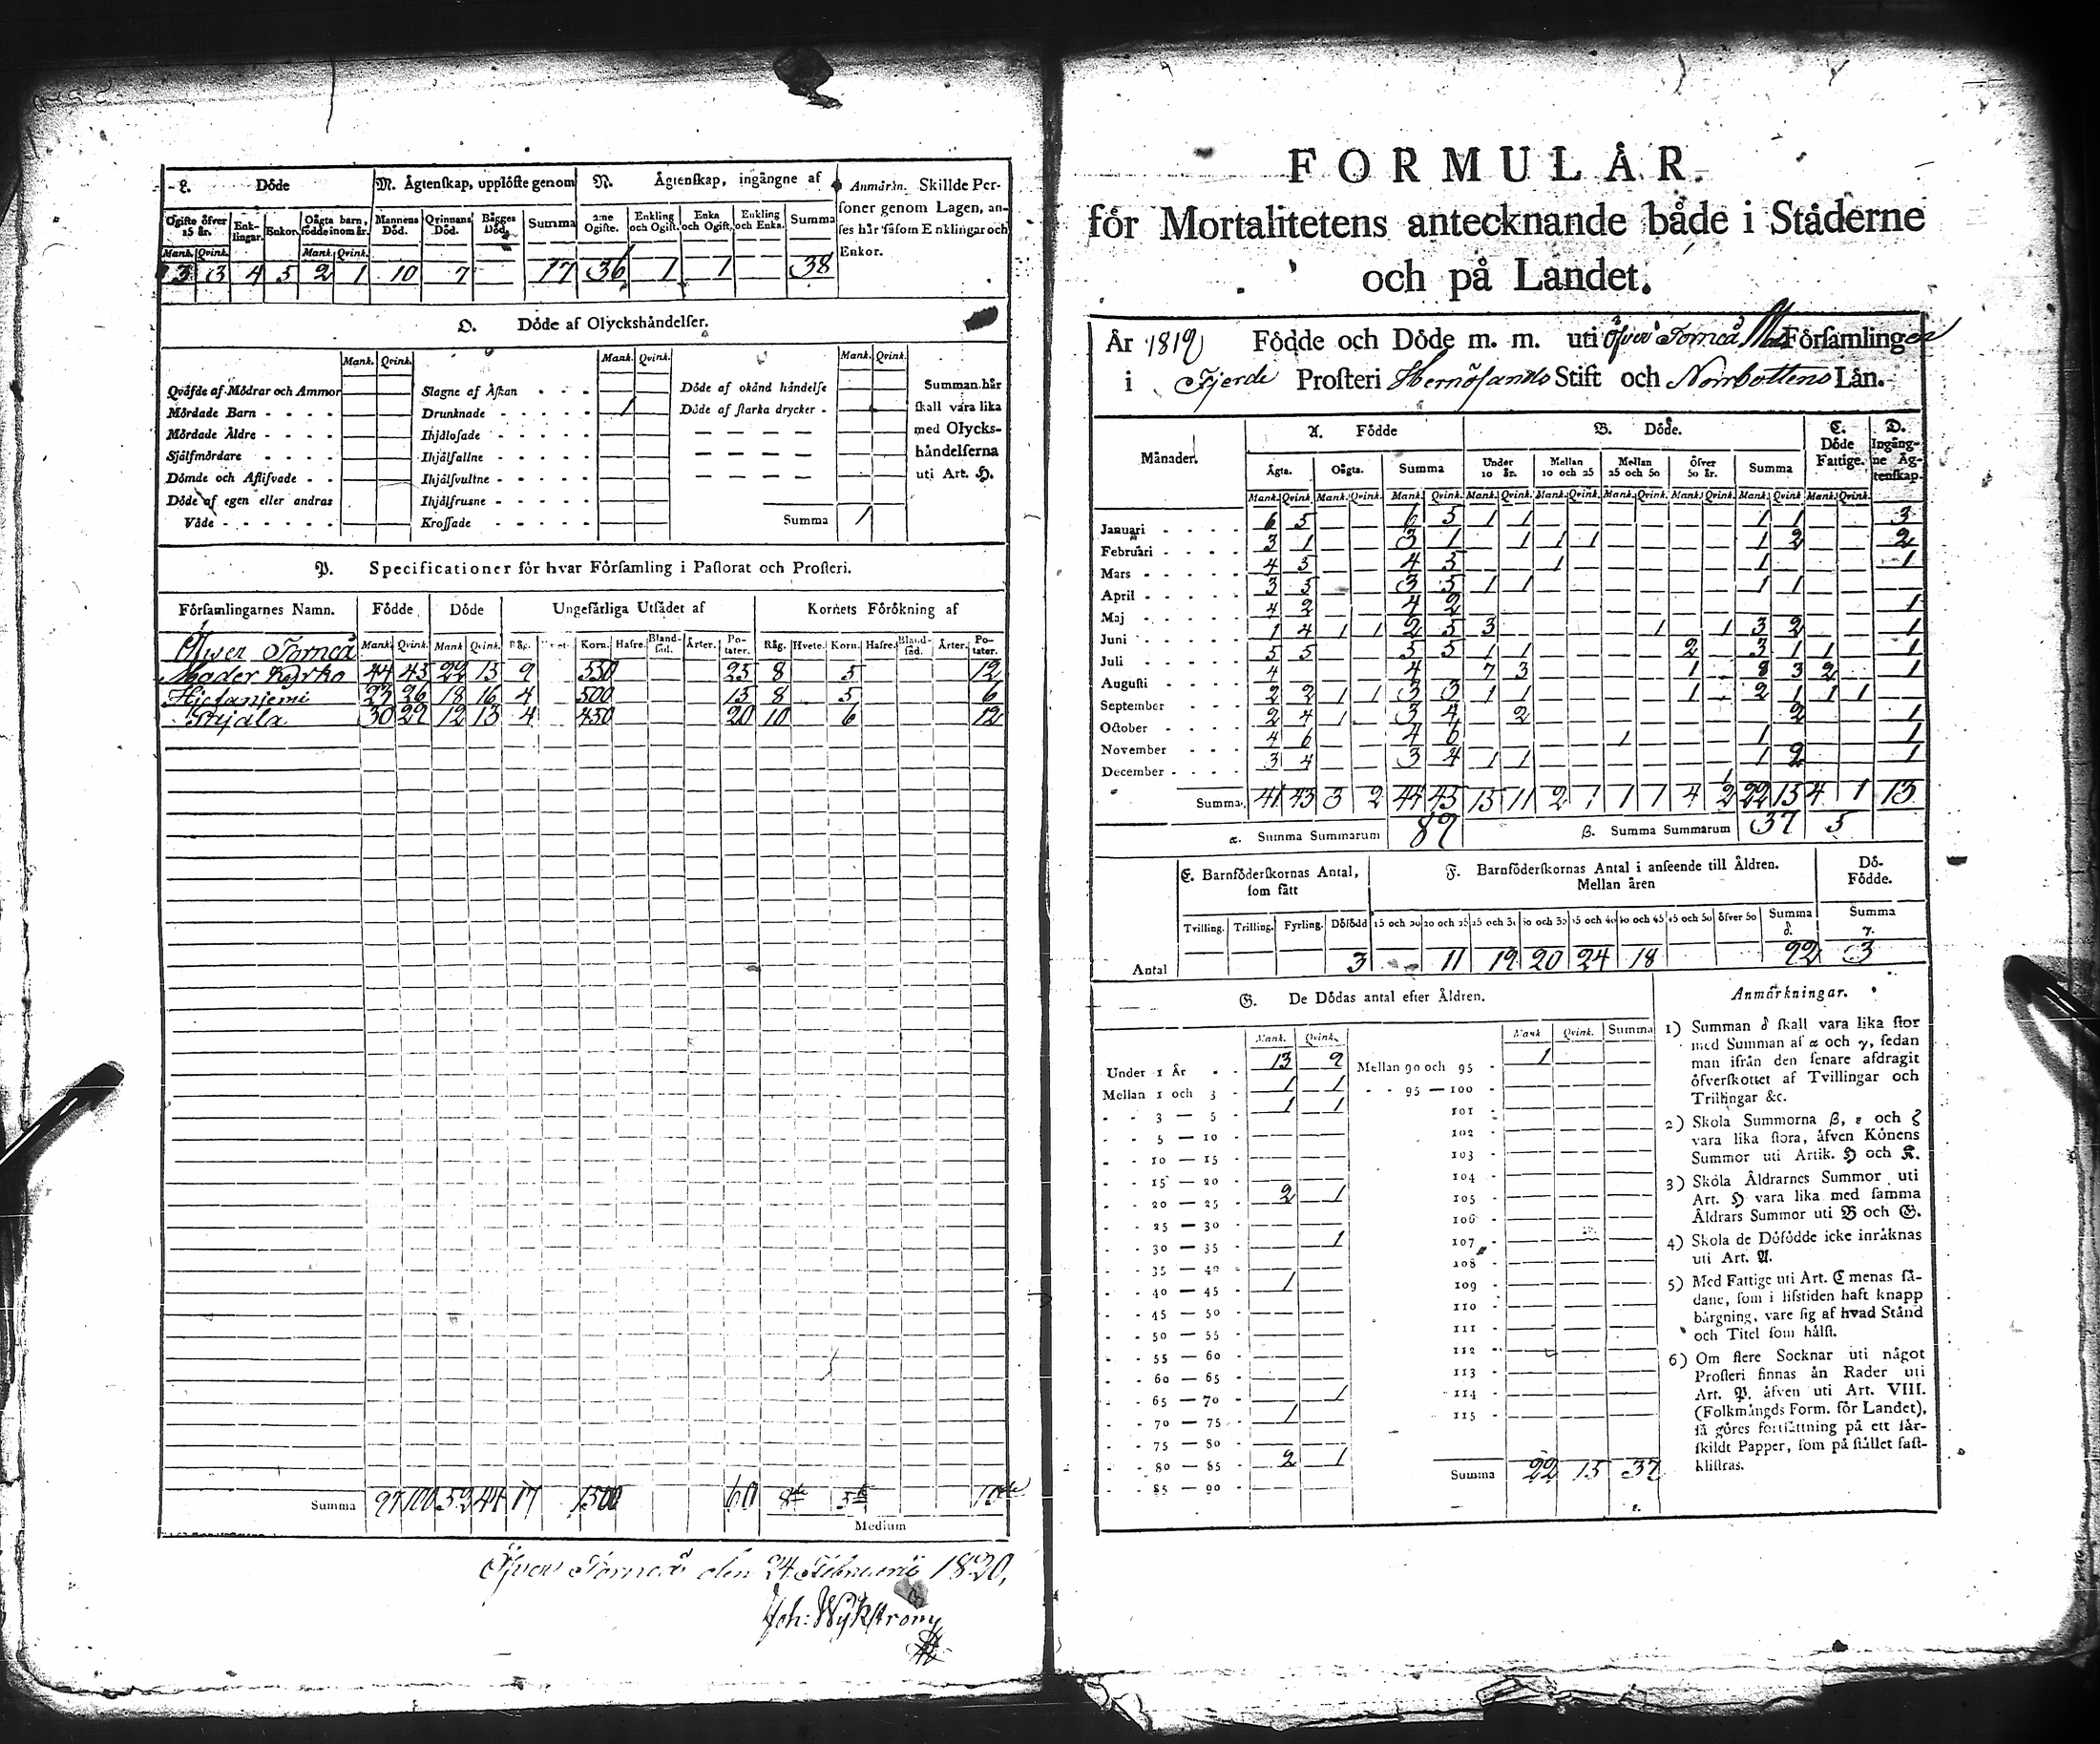 L. Döde
M. Ägtenskap, upplöste genom
N. Ägtenskap, ingångne af
Anmärkn. Skillde Personer genom Lagen, anses här såsom Enklingar och Enkor.
Ogifte öfver 15 år. Enklingar. Enkor. Oägta barn, födde inom år. Mannens Död. Qvinnans Död. Bägges Död. Summa 2:ne Ogifte. Enkling och Ogift. Enka och Ogift. Enkling och Enka. Summa
Mank. Qvink. Mank. Qvink.
3 3 4 5 2 1 10 7 — 17 36 1 1 — 38
O. Döde af Olyckshändelser.
Mank. Qvink. Mank. Qvink. Mank. Qvink.
Qväfde af Mödrar och Ammor
Mördade Barn
Mördade Äldre
Självmördare
Dömde och Aflifvade
Döde af egen eller andras Våde
Slagne af Åskan
Drunknade 1
Ihjälosade
Ihjälfallne
Ihjälsvultne
Ihjälfrusne
Krossade
Döde af okänd händelse
Döde af starka drycker
Summa 1
Summan här skall vara lika med Olyckshändelserna uti Art. H.
P. Specificationer för hvar Församling i Pastorat och Prosteri.
Församlingarnes Namn. Födde Döde Ungefärliga Utsädet af Kornets Förökning af
Mank. Qvink. Mank. Qvink. Råg. Hvete. Korn. Hafre. Blandsäd. Ärter. Potater. Råg. Hvete. Korn. Hafre. Blandsäd. Ärter. Potater.
Öfwer Torneå
Moder Kyrko 44 45 22 15 9 550 25 8 5 12
Hietaniemi 23 26 18 16 4 500 15 8 5 6
30 29 12 13 4 450 20 10 6 12
Summa 97 100 52 44 17 1500 60
Medium
Öfver Torneå den 24 Februarii 1820,
Joh: Wykström
FORMULÄR
för Mortalitetens antecknande både i Städerne
och på Landet.
År 1819 Födde och Döde m. m. uti Öfver Torneå Församlingen
i Fjerde Prosteri Hernösands Stift och Norrbottens Län.
Månader.
A. Födde
B. Döde.
C. Döde Fattige.
D. Ingångne Ägtenskap.
Ägta. Oägta. Summa Under 10 år. Mellan 10 och 25 Mellan 25 och 50 Öfver 50 år. Summa
Mank. Qvink. Mank. Qvink. Mank. Qvink. Mank. Qvink. Mank. Qvink. Mank. Qvink. Mank. Qvink. Mank. Qvink. Mank. Qvink.
Januari 6 5 — — 6 5 1 1 — — — — — — 1 1 — — 3
Februari 3 1 — — 3 1 — 1 1 1 — — — — 1 2 — — 2
Mars 4 5 — — 4 5 — — 1 — — — — — 1 — — — 1
April 3 5 — — 3 5 1 1 — — — — — — 1 1 — — —
Maj 4 2 — — 4 2 — — — — — — — — — — — — 1
Juni 1 4 1 1 2 5 3 — — — — 1 — 1 3 2 — — 1
Juli 5 5 — — 5 5 1 1 — — — — 2 — 3 1 1 — 1
Augusti 4 — — — 4 — 7 3 — — — — 1 — 8 3 2 — 1
September 2 2 1 1 3 3 1 1 — — — — 1 — 2 1 1 1 —
October 2 4 1 — 3 4 — 2 — — — — — — — 2 — — 1
November 4 6 — — 4 6 — — — — 1 — — — 1 — — — 1
December 3 4 — — 3 4 1 1 — — — — — 1 1 2 — — 1
Summa 41 43 3 2 44 45 15 11 2 1 1 1 4 2 22 15 4 1 13
α. Summa Summarum 89 β. Summa Summarum 37 5
E. Barnföderskornas Antal, som fått
F. Barnföderskornas Antal i anseende till Åldren. Mellan åren
Döfödde.
Tvilling. Trilling. Fyrling. Döfödd 15 och 20 20 och 25 25 och 30 30 och 35 35 och 40 40 och 45 45 och 50 öfver 50 Summa δ. Summa γ.
Antal 3 11 19 20 24 18 92 3
G. De Dödas antal efter Åldren.
Mank. Qvink. Mank. Qvink. Summa
Under 1 År 13 9
Mellan 1 och 3 1 1
3 — 5 1 1
5 — 10
10 — 15
15 — 20
20 — 25 2 1
25 — 30
30 — 35 1
35 — 40
40 — 45 1
45 — 50
50 — 55
55 — 60
60 — 65
65 — 70 1
70 — 75 1
75 — 80
80 — 85 2 1
85 — 90
Mellan 90 och 95 1
95 — 100
101
102
103
104
105
106
107
108
109
110
111
112
113
114
115
Summa 22 15 37
ε.
Anmärkningar.
1) Summan δ skall vara lika stor
med Summan af α och γ, sedan
man ifrån den senare afdragit
öfverskottet af Tvillingar och
Trillingar &c.
2) Skola Summorna β, ε och ζ
vara lika stora, äfven Könens
Summor uti Artik. H och K.
3) Skola Åldrarnes Summor uti
Art. H vara lika med samma
Åldrars Summor uti B och G.
4) Skola de Döfödde icke inräknas
uti Art. A.
5) Med Fattige uti Art. C menas så-
dane, som i lifstiden haft knapp
bärgning, vare sig af hvad Stånd
och Titel som hälst.
6) Om flere Socknar uti något
Prosteri finnas än Rader uti
Art. P. äfven uti Art. VIII.
(Folkmängds Form. för Landet),
så göres fortsättning på ett sär-
skildt Papper, som på stället fast-
klistras.